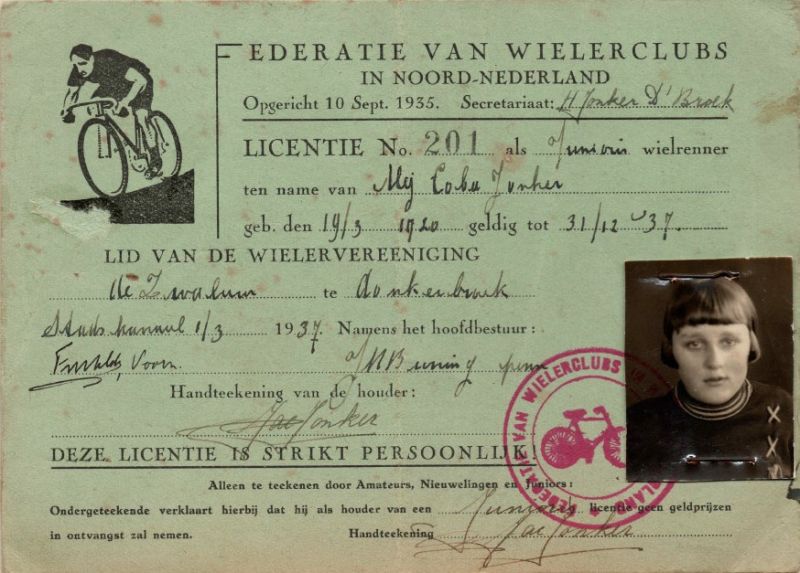 FEDERATIE VAN WIELERCLUBS
IN NOORD-NEDERLAND
Opgericht 10 Sept. 1935. Secretariaat: H Jonker D' Broek
LICENTIE No. 201 als Junioris wielrenner
ten name van Mej Coba Jonker
geb. den 19/3 1920 geldig tot 31/12 '37.
LID VAN DE WIELERVEREENIGING
de Zwaluw te donkerbroek
Stadskanaal 1/3 1937. Namens het hoofdbestuur:
Voorz. Buning penn
Handteekening van de houder:
Jac Jonker
DEZE LICENTIE IS STRIKT PERSOONLIJK!
FEDERATIE VAN WIELERCLUBS
Alleen te teekenen door Amateurs, Nieuwelingen en Juniors:
Ondergeteekende verklaart hierbij dat hij als houder van een Juniors licentie geen geldprijzen
in ontvangst zal nemen. Handteekening Jac Jonker